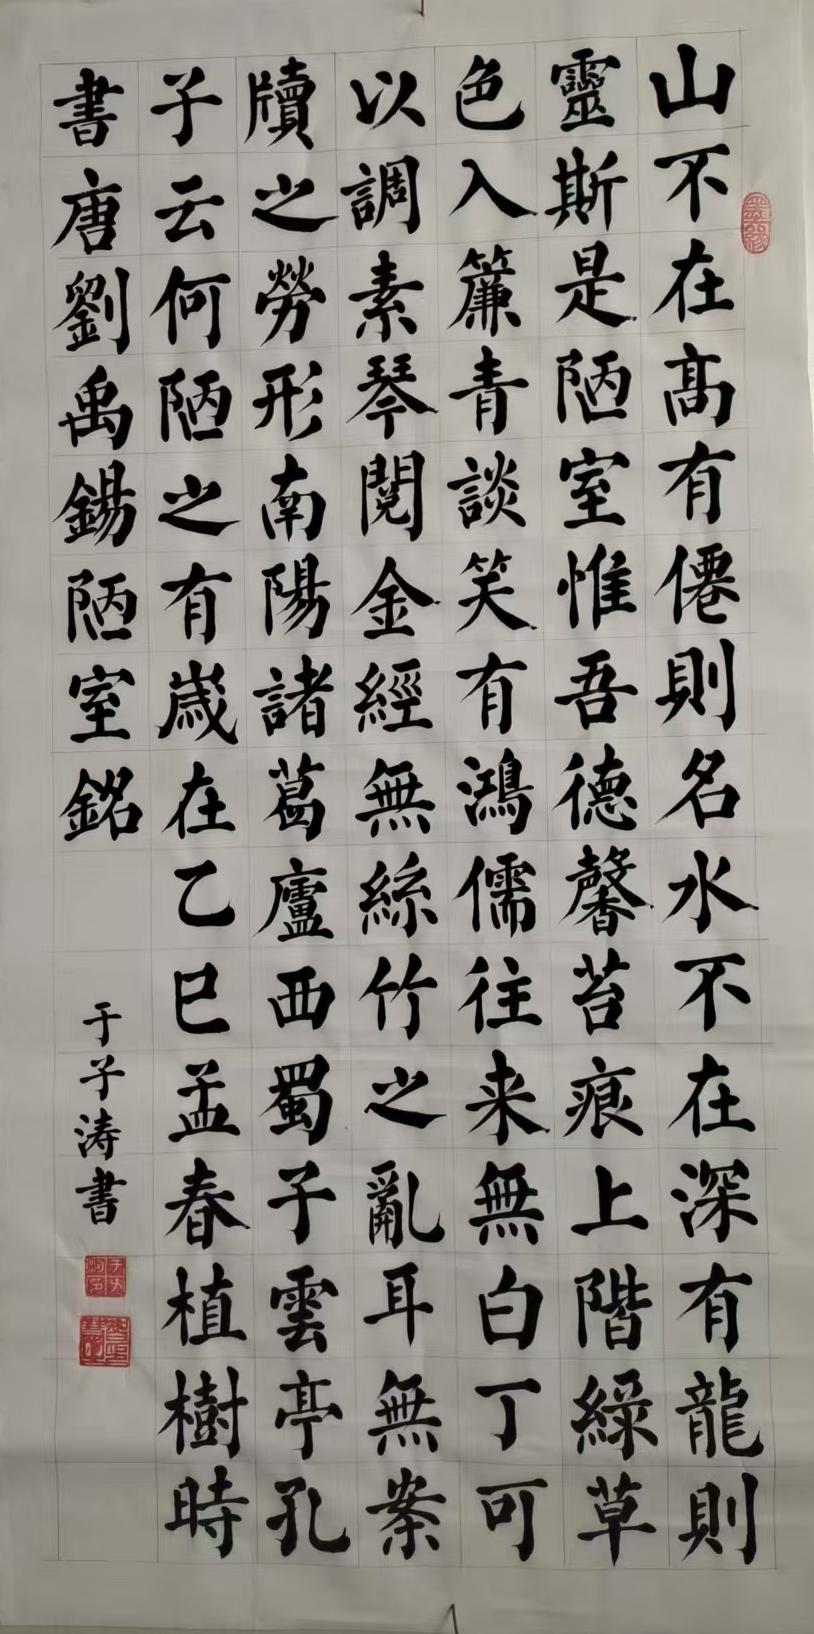 山不在高有僊則名水不在深有龍則
靈斯是陋室惟吾德馨苔痕上階綠草
色入簾青談笑有鴻儒往来無白丁可
以調素琴閱金經無絲竹之亂耳無案
牘之勞形南陽諸葛廬西蜀子雲亭孔
子云何陋之有歲在乙巳孟春植樹時
書唐劉禹錫陋室銘
于子涛書